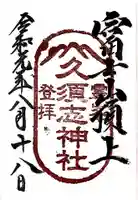 富士山頂上
久須志神社
登拝
令和元年八月十八日